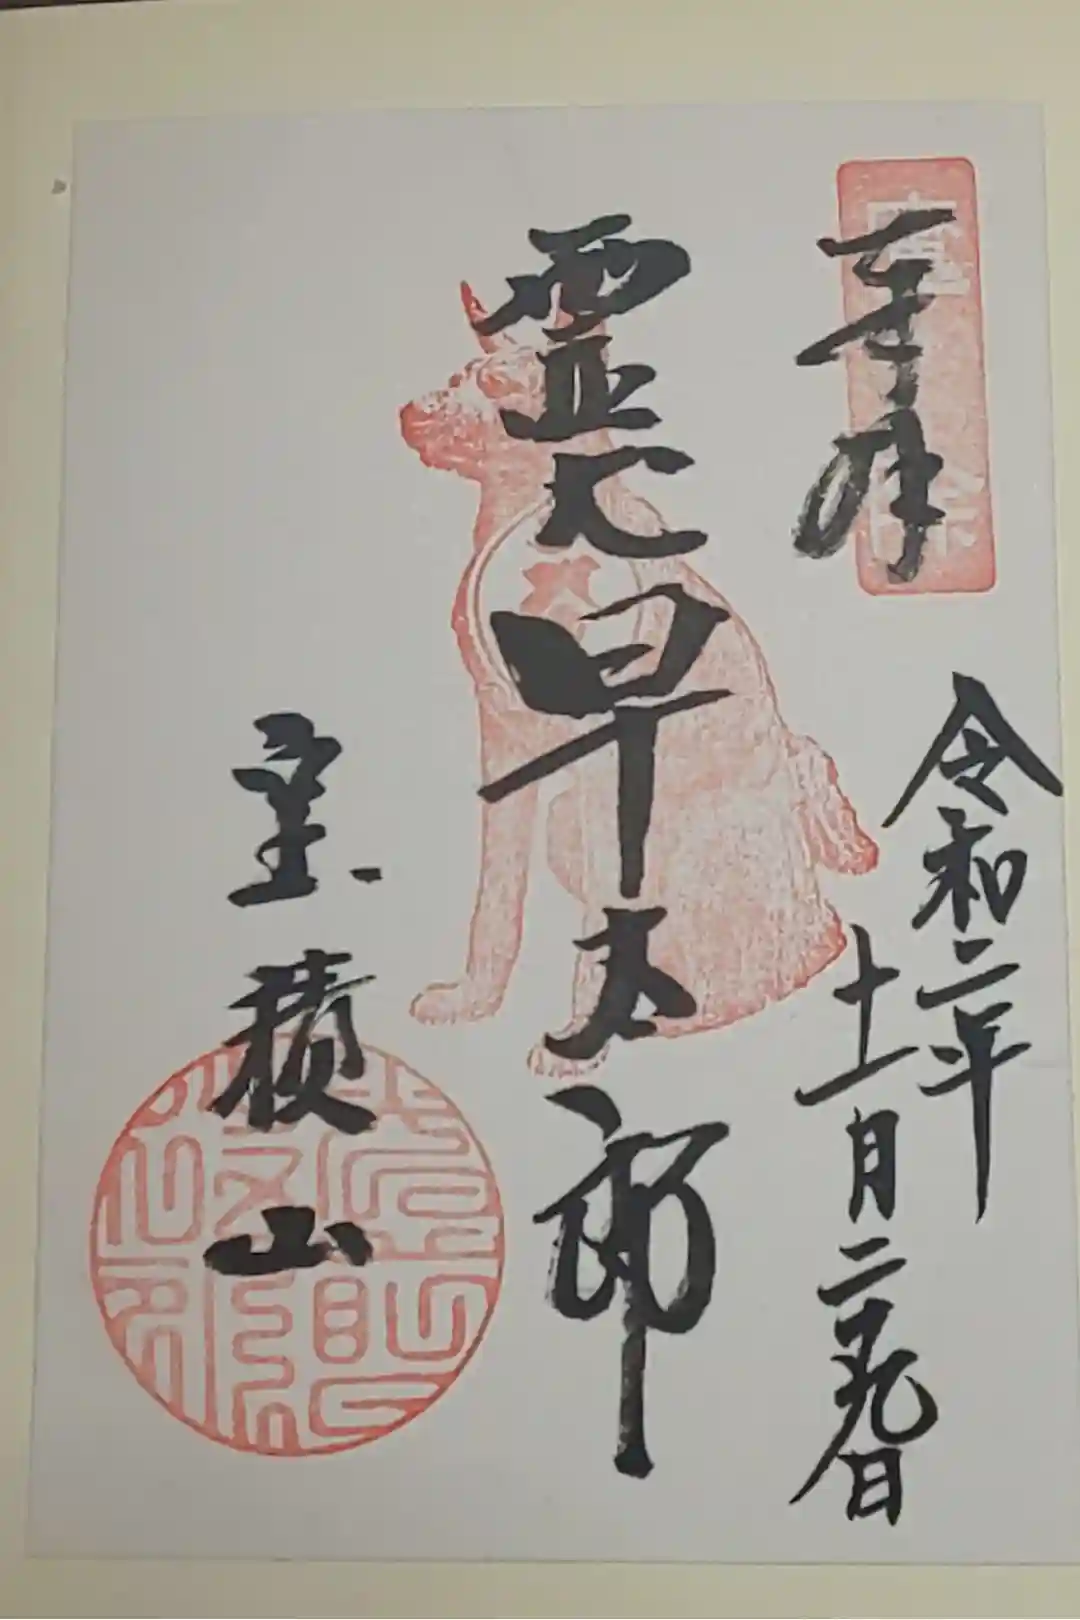 奉拝
令和二年
十一月二十九日
霊犬早太郎
宝積山